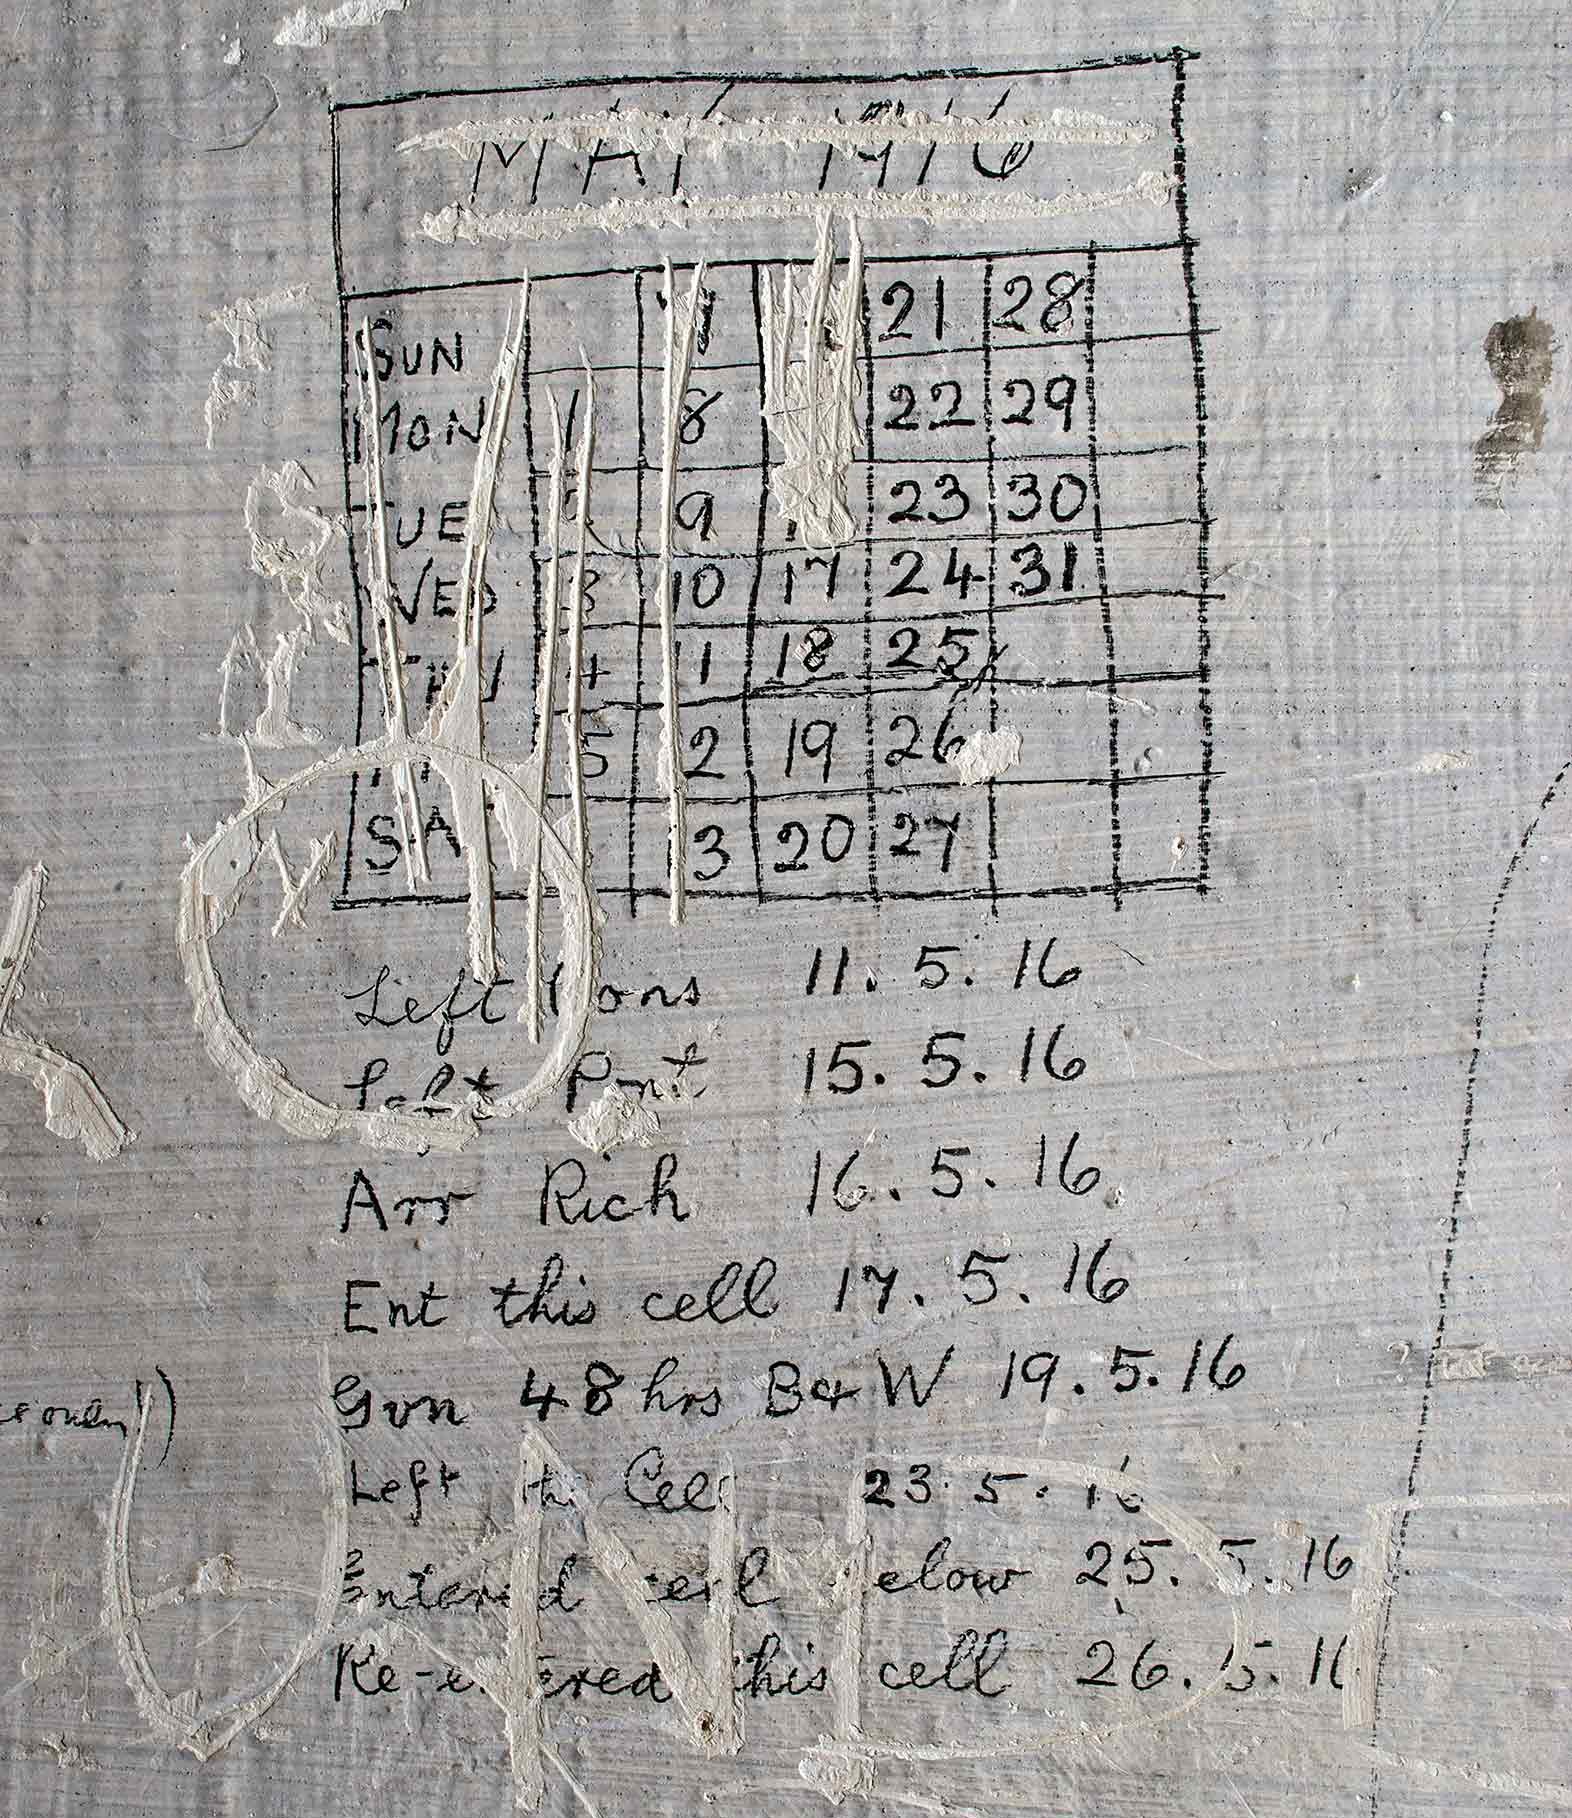 MAY 1916
SUN 7 21 28
MON 1 8 22 29
TUE 9 23 30
WED 3 10 17 24 31
THU 4 11 18 25
5 12 19 26
SA 13 20 27
Left 11. 5. 16
Left Pont 15. 5. 16
Arr Rich 16. 5. 16
Ent this cell 17. 5. 16
Gvn 48 hrs B & W 19. 5. 16
Left this Cell 23. 5. 16
Entered cell below 25. 5. 16
Re-entered this cell 26. 5. 16